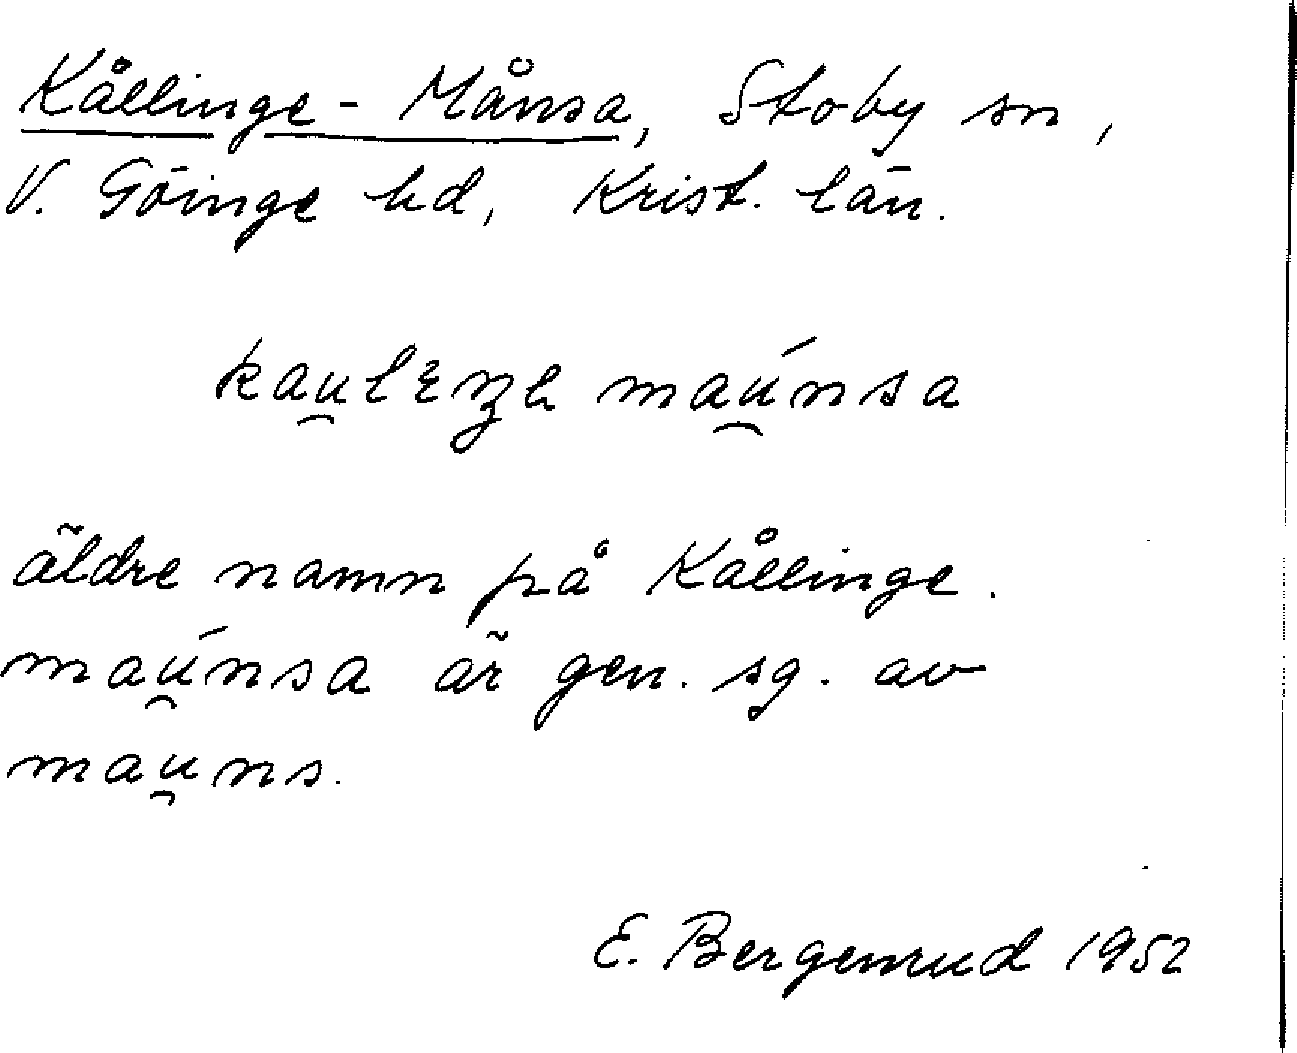 Kållinge - Månsa, Stoby sn,
V. Göinge hd, Krist. län.
kau̯lɛŋə maú̯nsa
äldre namn på Kållinge.
maú̯nsa är gen. sg. av
mau̯ns.
E. Bergenrud 1952